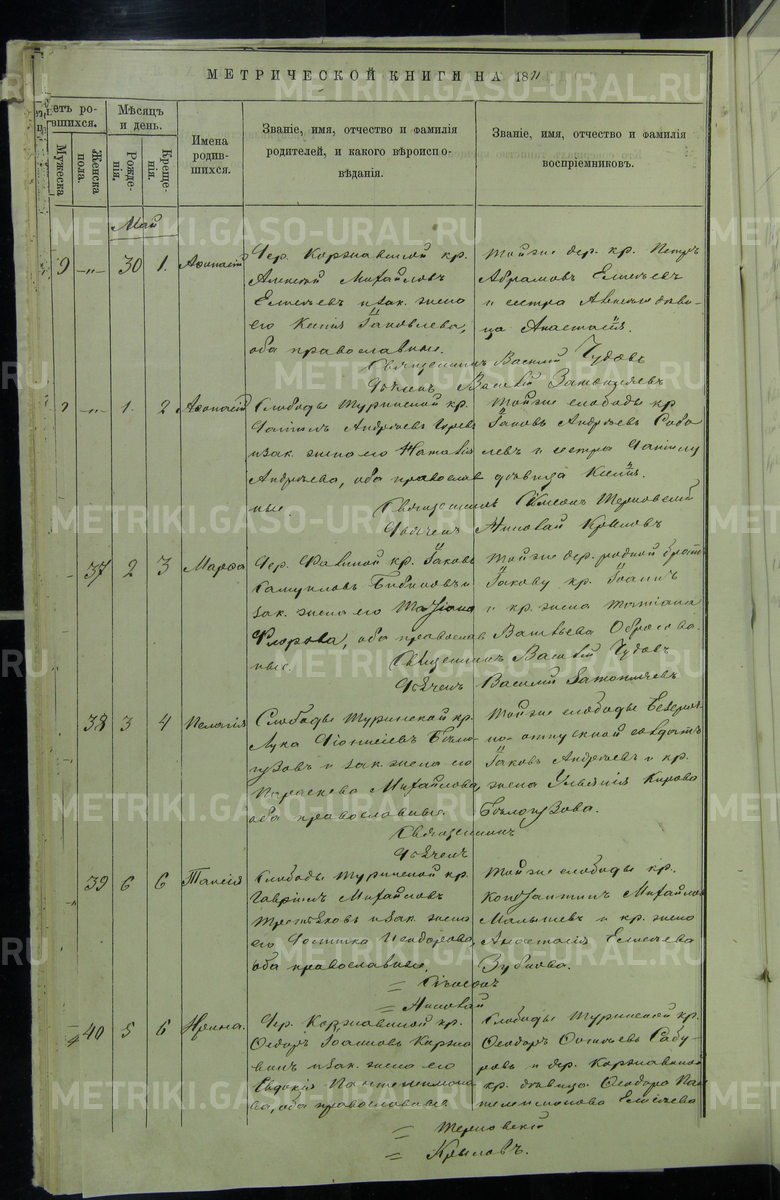 МЕТРИЧЕСКОЙ КНИГИ НА 1871
етъ ро-
вшихся.
Мужеска
Женска
пола.
Мѣсяцъ
и день.
Рожде-
нія.
Креще-
нія.
Имена
родив-
шихся.
Званіе, имя, отчество и фамилія
родителей, и какого вѣроиспо-
вѣданія.
Званіе, имя, отчество и фамилія
воспріемниковъ.
Май
9 -„- 30 1. Аѳанасій
Дер. Коржавиной кр.
Алексѣй Михайловъ
Елисѣевъ и зак. жена
его Ксенія Іаковлева,
оба православные.
Тойже дер. кр. Петръ
Абрамовъ Елисѣевъ
и сестра дѣви-
ца Анастасія.
Священникъ Василій Чудовъ
Василій
-„- 1. 2 Аѳанасій
Слободы Туринской кр.
Андреевъ
и зак. жена его Наталія
Андреева, оба православ
ные.
Тойже слободы кр.
Іаковъ Андреевъ
и сестра
дѣвица Ксенія.
Священникъ Симеонъ Терновскій
Крыловъ
37 2 3 Марѳа
Дер. кр. Іаковъ
и
зак. жена его Татіана
Флорова, оба православ
ные.
Тойже дер. родной братъ
Іакову кр. Іоаннъ
и кр. жена Татіана
Священникъ Василій Чудовъ
Василій
38 3 4 Пелагія
Слободы Туринской кр.
Лука Діонисіевъ Бѣло-
гузовъ и зак. жена его
Параскева Михайлова,
оба православные.
Тойже слободы безсроч-
но-отпускной солдатъ
Іаковъ Андреевъ и кр.
жена Кирова
Бѣлогузова.
Священникъ
39 6 6 Таисія
Слободы Туринской кр.
Гавріилъ Михайловъ
Третьяковъ и зак. жена
его Ѳеодорова,
оба православные.
Тойже слободы кр.
Константинъ Михайлов
Малышевъ и кр. жена
Анастасія Елисѣева
Зубкова.
= Симеонъ
=
40 5 6 Ирина.
Дер. Коржавиной кр.
Ѳедоръ Іоанновъ Коржа
винъ и зак. жена его
Евдокія Пантелеимоно-
ва, оба православные
Слободы Туринской кр.
Ѳеодоръ Сабу-
ровъ и дер. Коржавиной
кр. дѣвица Ѳеодора Пан
телеимонова Елисѣева
= Терновскій
= Крыловъ.
METRIKI.GASO-URAL.RU